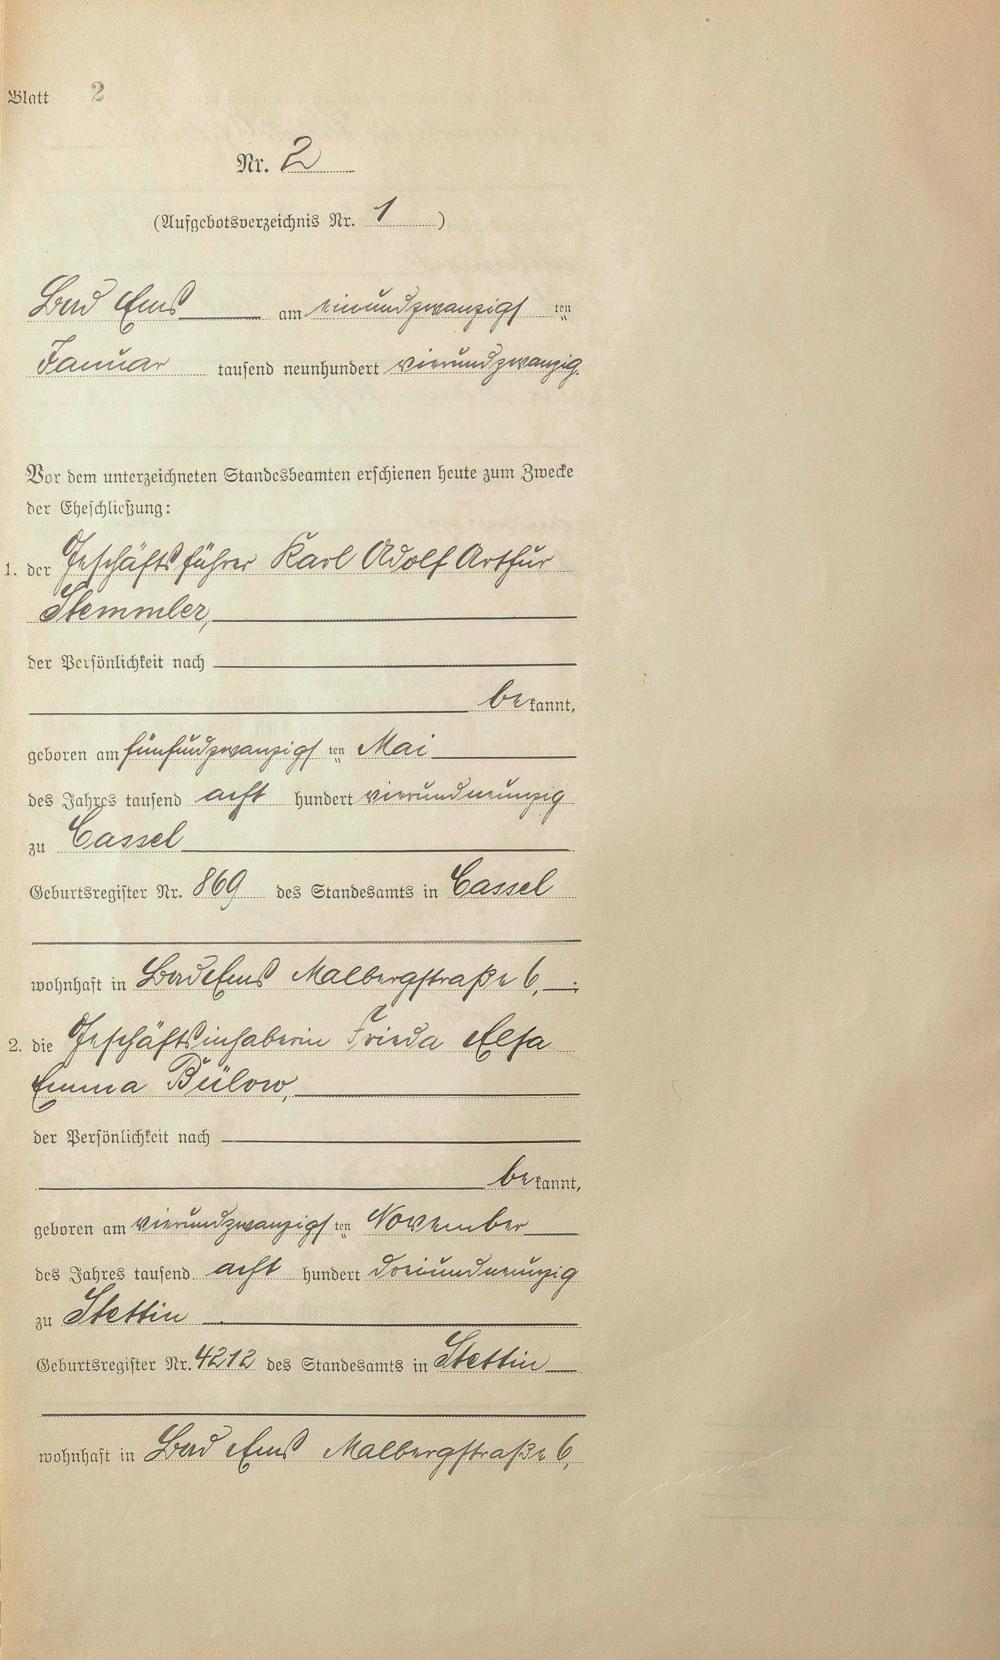 Blatt 2
Nr. 2
(Aufgebotsverzeichnis Nr. 1 )
Bad Ems am einundzwanzigs ten
Januar tausend neunhundert vierundzwanzig.
Vor dem unterzeichneten Standesbeamten erschienen heute zum Zwecke
der Eheschließung:
1. der Geschäftsführer Karl Adolf Arthur
Stemmler,
der Persönlichkeit nach
bekannt,
geboren am fünfundzwanzigs ten Mai
des Jahres tausend acht hundert vierundneunzig
zu Cassel
Geburtsregister Nr. 869 des Standesamts in Cassel
wohnhaft in Bad Ems Malbergstraße 6, ;
2. die Geschäftsinhaberin Frieda Elsa
Emma Bülow,
der Persönlichkeit nach
bekannt,
geboren am vierundzwanzigs ten November
des Jahres tausend acht hundert dreiundneunzig
zu Stettin
Geburtsregister Nr. 4212 des Standesamts in Stettin
wohnhaft in Bad Ems Malbergstraße 6,